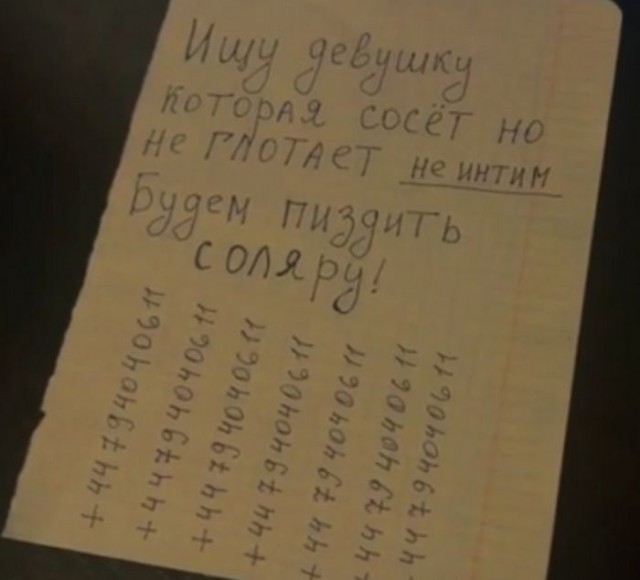 Ищу девушку
которая сосёт но
не глотает не интим
Будем пиздить
соляру!
+44794040611
+44794040611
+44794040611
+44794040611
+44794040611
+44794040611
44794040611